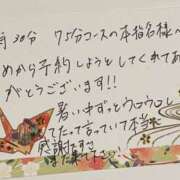 時30分 75分コースの本指名様へ
めから予約しようとしてくれてあ
がとうございます!!
暑い中ずっとウロウロし
てたって言っていて本当に
感謝です
また来て下さい